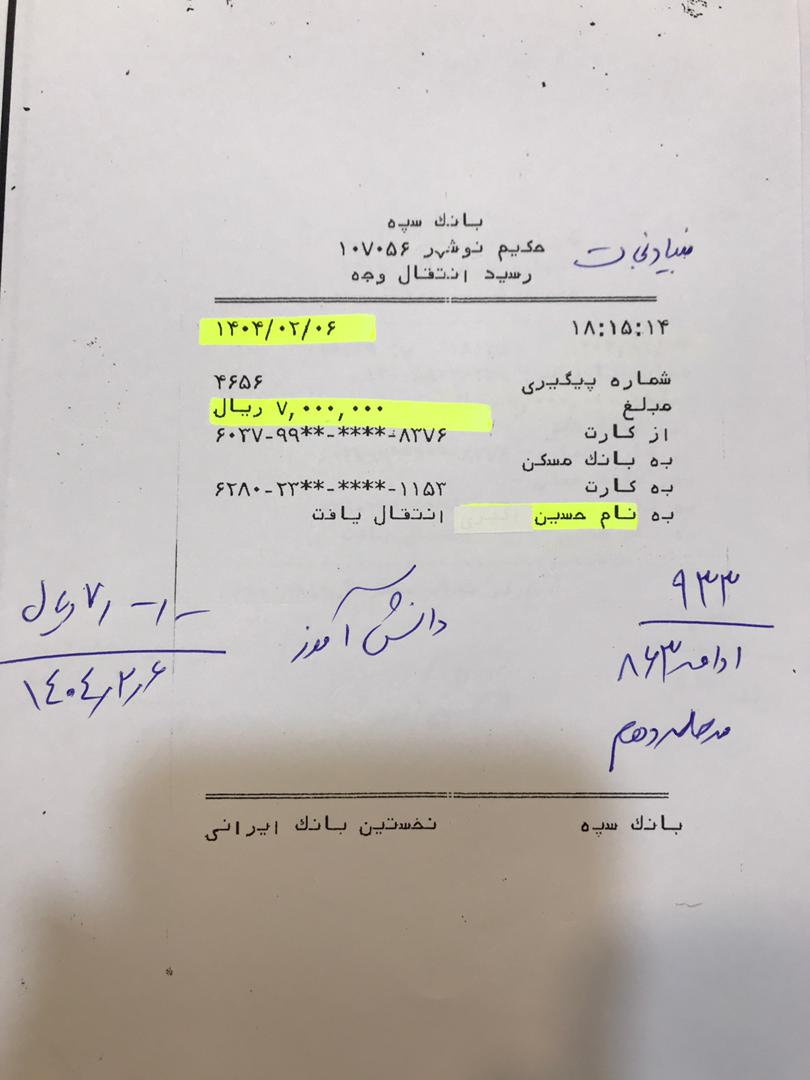 بانك سپه
حکیم نوشهر ۱۰۷۰۵۶
بنیاد نجات
رسید انتقال وجه
۱۴۰۴/۰۲/۰۶ ۱۸:۱۵:۱۴
شماره پیگیری ۴۶۵۶
مبلغ ۷,۰۰۰,۰۰۰ ریال
از کارت ۶۰۳۷-۹۹**-****-۸۳۷۶
به بانك مسکن
به کارت ۶۲۸۰-۲۳**-****-۱۱۵۳
به نام حسین انتقال یافت
۹۳۳
ادامه ۸۶۳
مرحله دهم
دانش آموز
۷/۰۰۰/۰۰۰ ریال
۱۴۰۴/۲/۶
بانك سپه نخستین بانك ایرانی